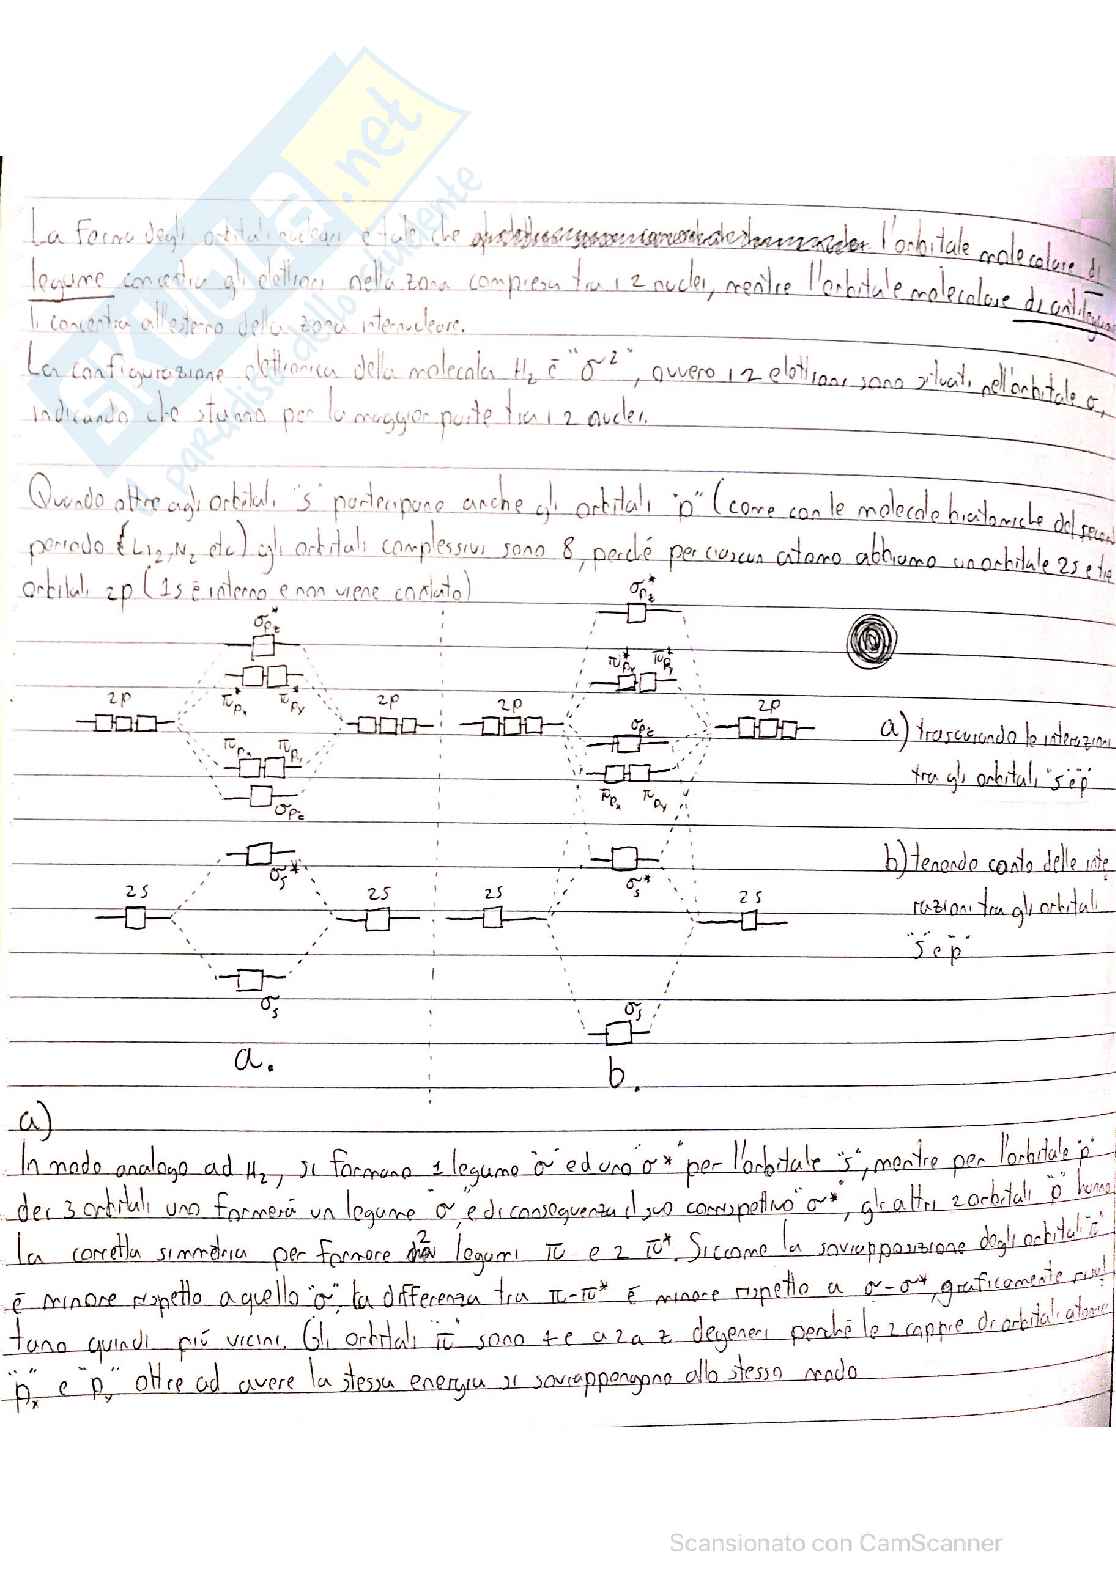 SKUOLA.net
il paradiso dello studente
La forma degli orbitali è tale che l'orbitale molecolare di
legame concentra gli elettroni nella zona compresa tra i 2 nuclei, mentre l'orbitale molecolare di antilegame
li concentra all'esterno della zona internucleare.
La configurazione elettronica della molecola H₂ è "σ²", ovvero i 2 elettroni sono situati nell'orbitale σ,
indicando che stanno per la maggior parte tra i 2 nuclei.
Quando oltre agli orbitali "s" partecipano anche gli orbitali "p" (come con le molecole biatomiche del secondo
periodo (Li₂, N₂ etc) gli orbitali complessivi sono 8, perché per ciascun atomo abbiamo un orbitale 2s e tre
orbitali 2p (1s è interno e non viene contato)
σpz* σpz*
πpx* πpy* πpx* πpy*
2p 2p 2p σpz 2p
a) trascurando le interazioni
πpx πpy
tra gli orbitali "s e p"
σpz πpx πpy
σs* σs*
b) tenendo conto delle inte
2s 2s 2s 2s
razioni tra gli orbitali
"s e p"
σs σs
a. b.
a)
In modo analogo ad H₂, si formano 1 legame "σ" ed uno "σ*" per l'orbitale "s", mentre per l'orbitale "p"
dei 3 orbitali uno formerà un legame "σ", e di conseguenza il suo corrispettivo "σ*", gli altri 2 orbitali "p" hanno
la corretta simmetria per formare 2 legami π e 2 π*. Siccome la sovrapposizione degli orbitali "π"
è minore rispetto a quello "σ", la differenza tra π-π* è minore rispetto a σ-σ*, graficamente risul
tano quindi più vicini. Gli orbitali "π" sono + e a 2 a 2 degeneri perché le 2 coppie di orbitali atomici
"px" e "py" oltre ad avere la stessa energia si sovrappongono allo stesso modo
Scansionato con CamScanner